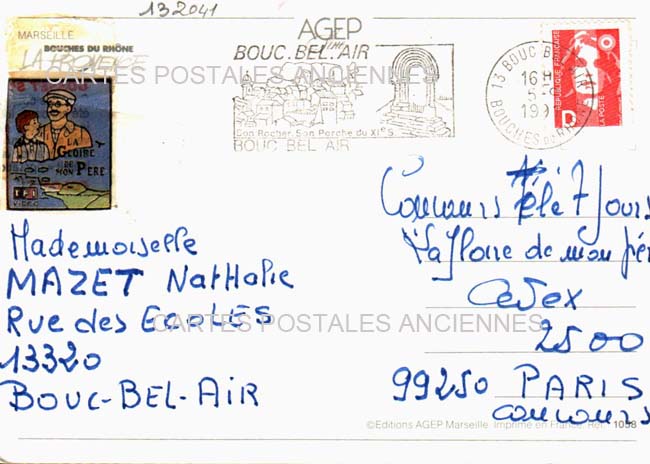 132041
AGEP
MARSEILLE
BOUCHES DU RHÔNE
LA PROVENCE
BOUC.BEL.AIR
CARTES POSTALES ANCIENNES
Son Rocher. Son Porche du XIe S.
BOUC BEL AIR
13 BOUC BEL AIR
16H
5-
199
BOUCHES DU RHONE
REPUBLIQUE FRANÇAISE
LA POSTE
D
LA
GLOIRE
DE
MON PÈRE
TF1
VIDEO
Mademoiselle
MAZET Nathalie
Rue des EcoLES
13320
BOUC-BEL-AIR
Concours Télé 7 Jours
"La gloire de mon pèr
CeDex
2500
99250 PARIS
concours
CARTES POSTALES ANCIENNES
©Editions AGEP Marseille. Imprimé en France. Réf. 1098